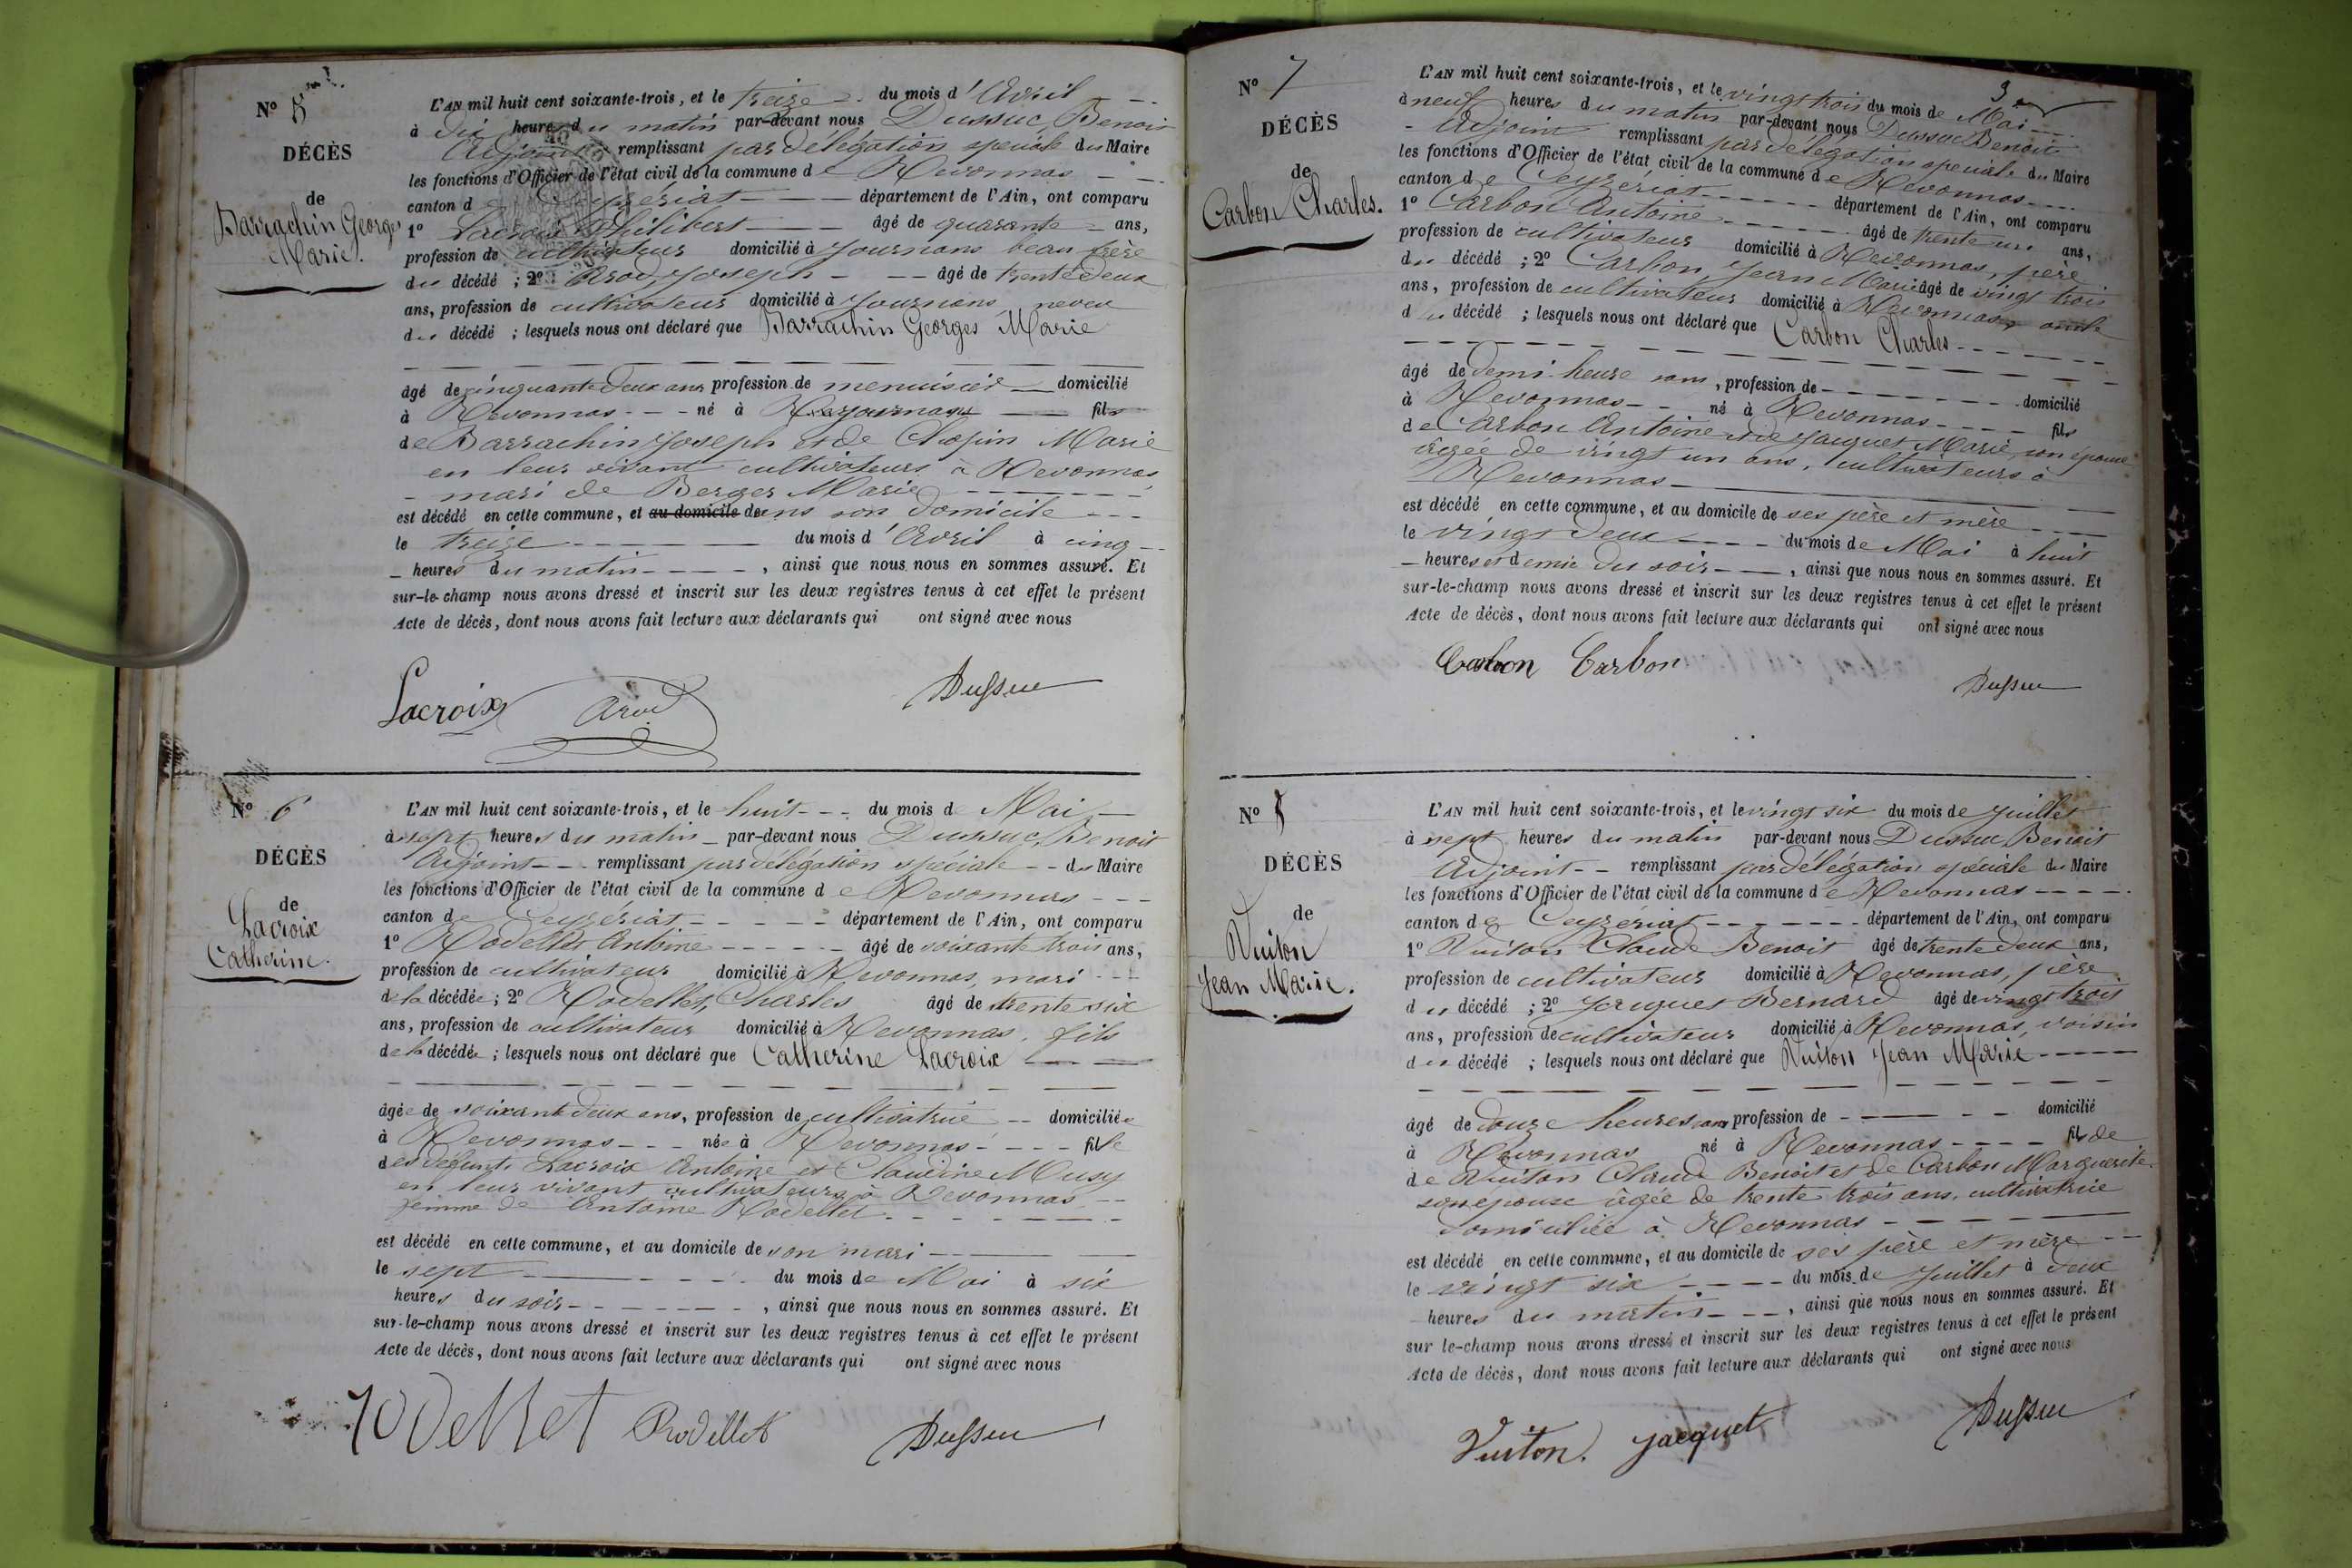 N° 5
DÉCÈS
de
Barrachin Georges
Marie.
L'AN mil huit cent soixante-trois, et le treize du mois d'Avril
à dix heures du matin par-devant nous Dussuc, Benoit
Adjoint remplissant par délégation spéciale du Maire
les fonctions d'Officier de l'état civil de la commune de Revonnas
canton de Ceyzériat département de l'Ain, ont comparu
1° Lacroix Philibert âgé de quarante ans,
profession de cultivateur domicilié à Journans beau frère
du décédé ; 2° Arod, Joseph âgé de trente deux
ans, profession de cultivateur domicilié à Journans neveu
du décédé ; lesquels nous ont déclaré que Barrachin Georges Marie
âgé de cinquante deux ans, profession de menuisier domicilié
à Revonnas né à fils
de Barrachin Joseph et de Chapin Marie
en leur vivant cultivateurs à Revonnas,
mari de Berger Marie
est décédé en cette commune, et au domicile dans son domicile
le treize du mois d'Avril à cinq
heures du matin, ainsi que nous nous en sommes assuré. Et
sur-le-champ nous avons dressé et inscrit sur les deux registres tenus à cet effet le présent
Acte de décès, dont nous avons fait lecture aux déclarants qui ont signé avec nous
Lacroix Arod Dussuc
N° 6
DÉCÈS
de
Lacroix
Catherine.
L'AN mil huit cent soixante-trois, et le huit du mois de Mai
à sept heures du matin par-devant nous Dussuc, Benoit
Adjoint remplissant par délégation spéciale du Maire
les fonctions d'Officier de l'état civil de la commune de Revonnas
canton de Ceyzériat département de l'Ain, ont comparu
1° Rodellet Antoine âgé de soixante trois ans,
profession de cultivateur domicilié à Revonnas, mari
de la décédée ; 2° Rodellet, Charles âgé de trente six
ans, profession de cultivateur domicilié à Revonnas, fils
de la décédée ; lesquels nous ont déclaré que Catherine Lacroix
âgée de soixante deux ans, profession de cultivatrice domiciliée
à Revonnas née à Revonnas fille
des défunts Lacroix Antoine et Claudine Musy
en leur vivant cultivateurs à Revonnas
femme de Antoine Rodellet
est décédé en cette commune, et au domicile de son mari
le sept du mois de Mai à six
heures du soir, ainsi que nous nous en sommes assuré. Et
sur-le-champ nous avons dressé et inscrit sur les deux registres tenus à cet effet le présent
Acte de décès, dont nous avons fait lecture aux déclarants qui ont signé avec nous
Rodellet Rodillet Dussuc
3
N° 7
DÉCÈS
de
Carbon Charles.
L'AN mil huit cent soixante-trois, et le vingt trois du mois de Mai
à neuf heures du matin par-devant nous Dussuc Benoit
Adjoint remplissant par délégation spéciale du Maire
les fonctions d'Officier de l'état civil de la commune de Revonnas
canton de Ceyzériat département de l'Ain, ont comparu
1° Carbon Antoine âgé de trente un ans,
profession de cultivateur domicilié à Revonnas, père
du décédé ; 2° Carbon, Jean Marie âgé de vingt trois
ans, profession de cultivateur domicilié à Revonnas, oncle
du décédé ; lesquels nous ont déclaré que Carbon Charles
âgé de demi-heure ans, profession de domicilié
à Revonnas né à Revonnas fils
de Carbon Antoine et de Jacquet Marie, son épouse
âgée de vingt un ans, cultivateurs à
Revonnas
est décédé en cette commune, et au domicile de ses père et mère
le vingt deux du mois de Mai à huit
heures et demie du soir, ainsi que nous nous en sommes assuré. Et
sur-le-champ nous avons dressé et inscrit sur les deux registres tenus à cet effet le présent
Acte de décès, dont nous avons fait lecture aux déclarants qui ont signé avec nous
Carbon Carbon Dussuc
N° 8
DÉCÈS
de
Vuiton
Jean Marie.
L'AN mil huit cent soixante-trois, et le vingt six du mois de Juillet
à sept heures du matin par-devant nous Dussuc Benoit
Adjoint remplissant par délégation spéciale du Maire
les fonctions d'Officier de l'état civil de la commune de Revonnas
canton de Ceyzériat département de l'Ain, ont comparu
1° Vuiton Claude Benoit âgé de trente deux ans,
profession de cultivateur domicilié à Revonnas, père
du décédé ; 2° Jacquet Bernard âgé de vingt trois
ans, profession de cultivateur domicilié à Revonnas, voisin
du décédé ; lesquels nous ont déclaré que Vuiton Jean Marie
âgé de douze heures ans profession de domicilié
à Revonnas né à Revonnas fils de
de Vuiton Claude Benoit et de Carbon Marguerite
son épouse âgée de trente trois ans, cultivatrice
domiciliée à Revonnas
est décédé en cette commune, et au domicile de ses père et mère
le vingt six du mois de Juillet à deux
heures du matin, ainsi que nous nous en sommes assuré. Et
sur le-champ nous avons dressé et inscrit sur les deux registres tenus à cet effet le présent
Acte de décès, dont nous avons fait lecture aux déclarants qui ont signé avec nous
Vuiton. Jacquet Dussuc